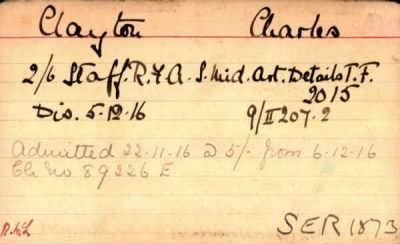 Clayton Charles
2/6 Staff. R.F.A. S. Mid. Art. Details T.F.
2015
Dis. 5-12-16 9/II207.2
Admitted 22-11-16 @ 5/- from 6-12-16
Ch. No 89226 E
SER 1873